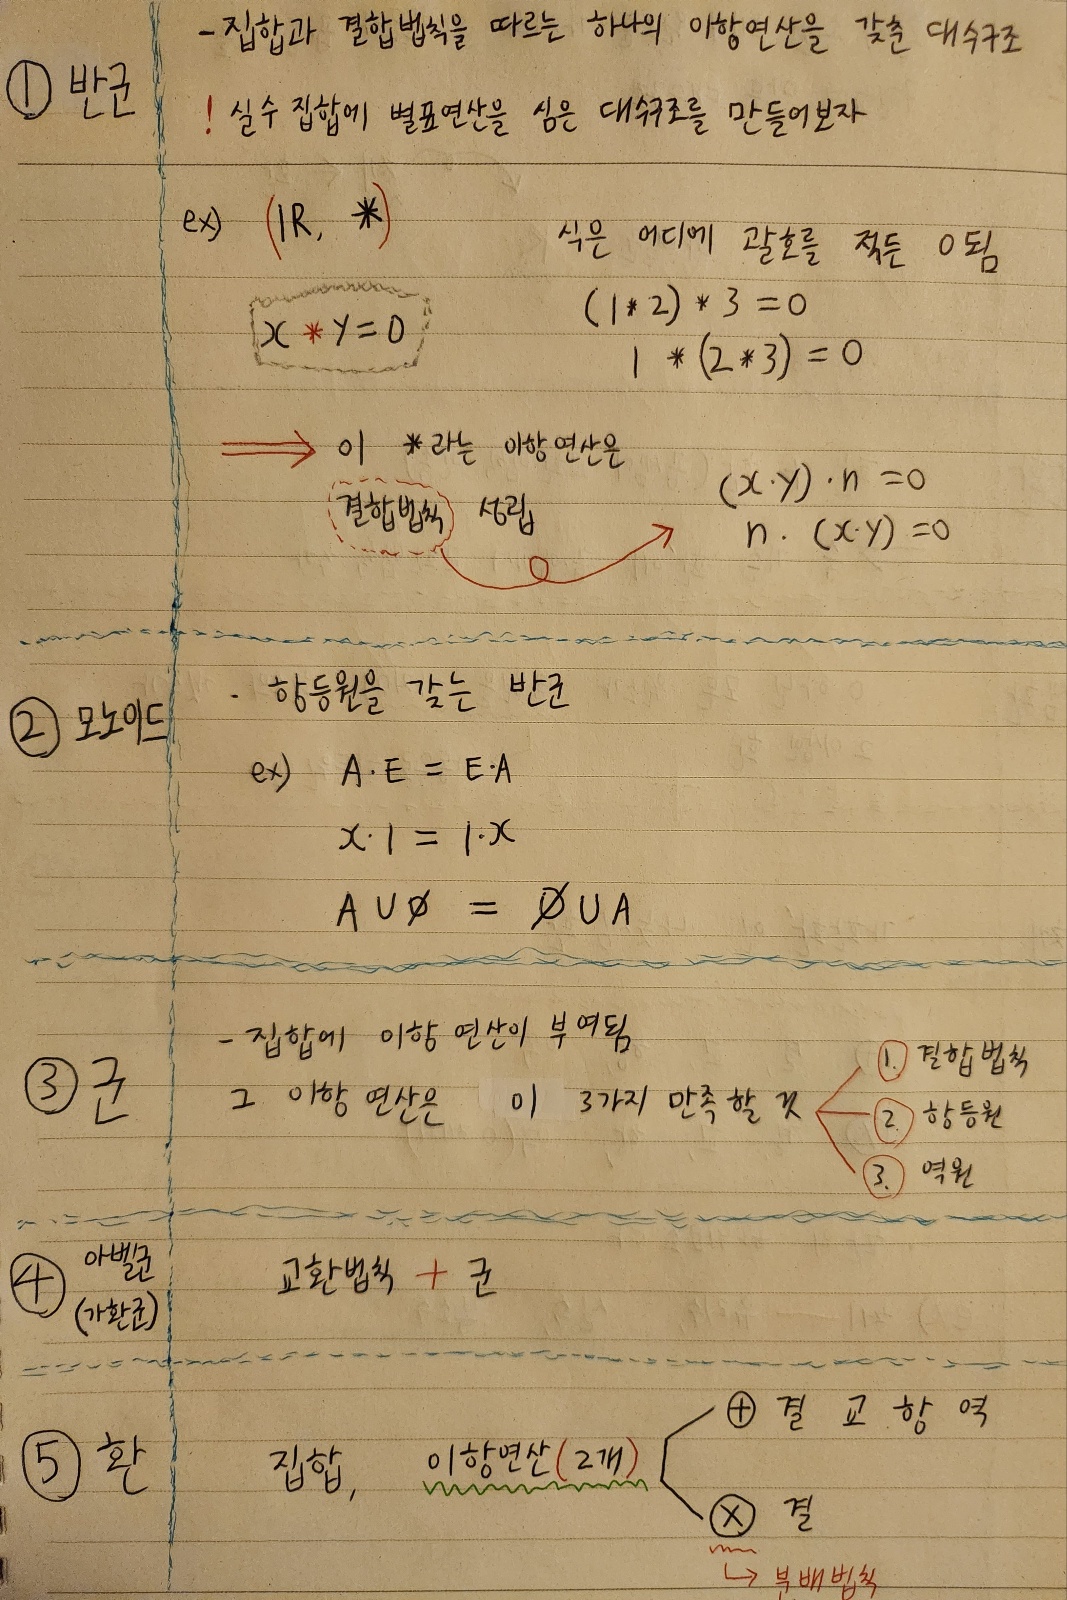 ① 반군
- 집합과 결합법칙을 따르는 하나의 이항연산을 갖춘 대수구조
! 실수 집합에 별표연산을 심은 대수구조를 만들어보자
ex) (ℝ, *)
x * y = 0
식은 어디에 괄호를 적든 0됨
(1*2) * 3 = 0
1 * (2*3) = 0
⇒ 이 *라는 이항연산은
결합법칙 성립
(x·y)·n = 0
n·(x·y) = 0
② 모노이드
- 항등원을 갖는 반군
ex) A·E = E·A
x·1 = 1·x
A∪∅ = ∅∪A
③ 군
- 집합에 이항 연산이 부여됨
그 이항 연산은 이 3가지 만족할 것
1. 결합법칙
2. 항등원
3. 역원
④ 아벨군
(가환군)
교환법칙 + 군
⑤ 환
집합, 이항연산(2개)
⊕ 결 교 항 역
ⓧ 결
↳ 분배법칙